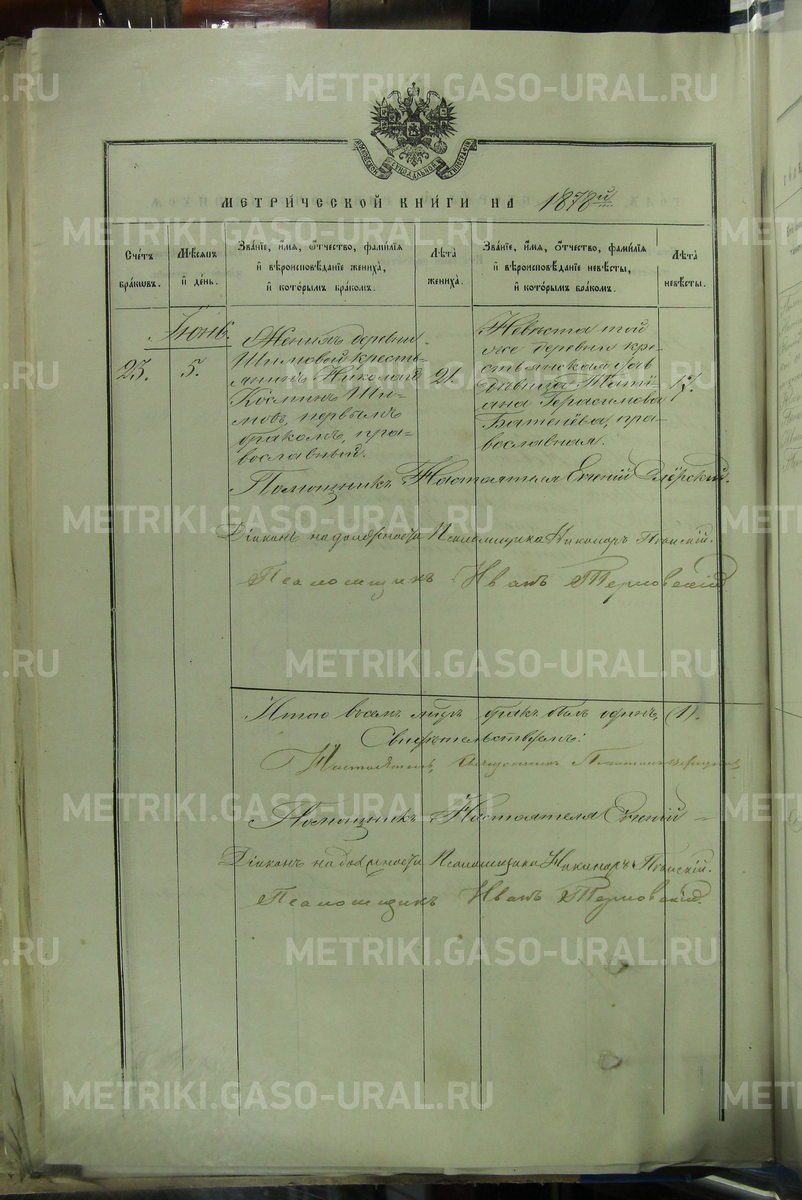 METRIKI.GASO-URAL.RU
МЕТРИ́ЧЕСКОЙ КНИ́ГИ НА 1878й
Сче́тъ бра́ковъ.
Мѣ́сяцъ и де́нь.
Зва́нїе, и́мя, ѻ҆́тчество, фами́лїя и҆ вѣроисповѣ́данїе жениха̀, и҆ кото́рымъ бра́комъ.
Лѣ́та жениха̀.
Зва́нїе, и́мя, ѻ҆́тчество, фами́лїя и҆ вѣроисповѣ́данїе невѣ́сты, и҆ кото́рымъ бра́комъ.
Лѣ́та невѣ́сты.
Іюнь.
23.
5.
Женихъ деревни
Шиловой кресть-
янинъ Николай
Косминъ Ши-
ловъ, первымъ
бракомъ, пра-
вославный.
21.
Невѣста той
же деревни кре-
стьянская
дѣвица Тати-
ана Герасимова
Батенёва, пра-
вославная.
17.
Помощникъ Настоятеля Евгеній
Діаконъ на должности Псаломщика Никаноръ
Псаломщикъ Иванъ Терновскій
Итого въ семъ бракъ былъ одинъ, (1).
Свидѣтельствуемъ:
Настоятель, Священникъ
Помощникъ Настоятеля Евгеній
Діаконъ на должности Псаломщика Никаноръ
Псаломщикъ Иванъ Терновскій.